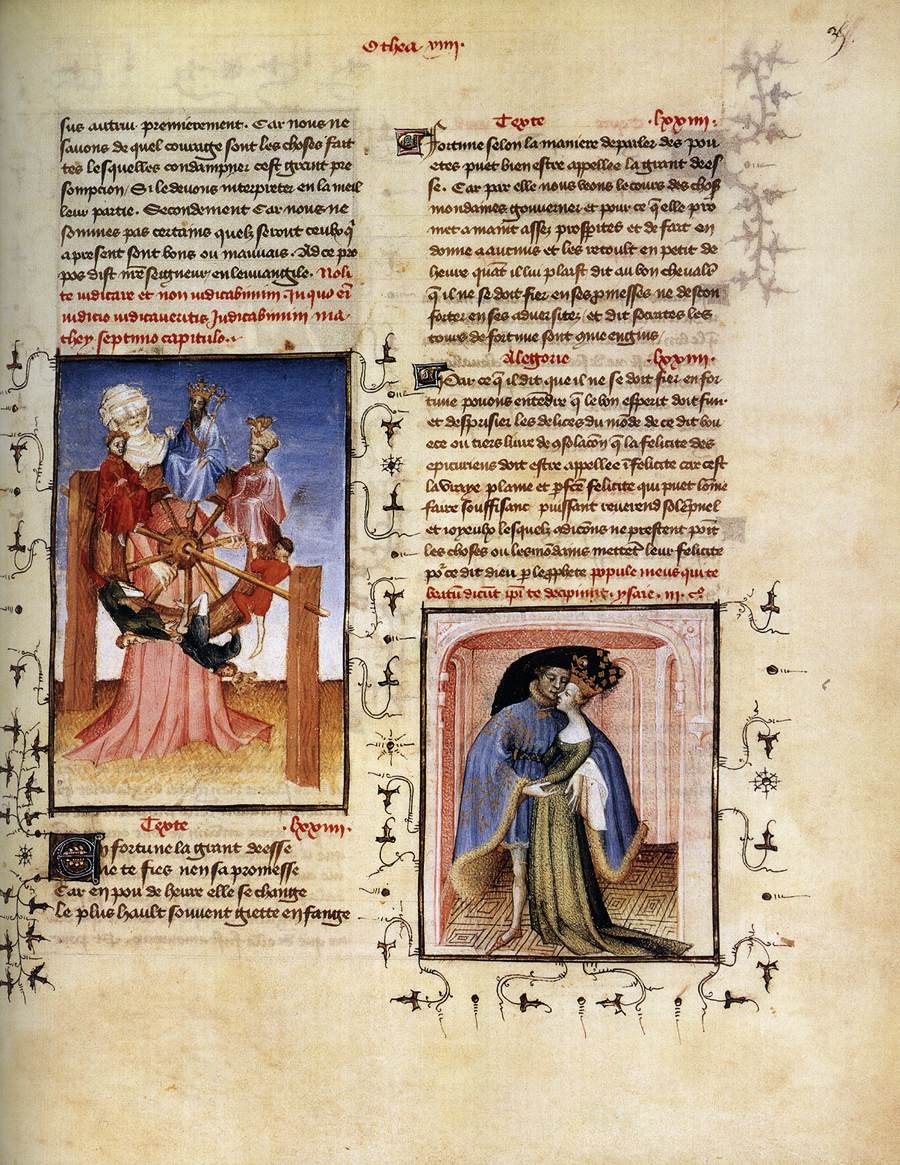 Othea viiii.
sus autrui premierement. Car nous ne
sauons de quel courage sont les choses fait
tes lesquelles condampner cest grant pre
sompcion / Si le deuons interpreter en la meil
leur partie. Secondement Car nous ne
sommes pas certains quelz seront ceulx q̄
a present sont bons ou mauuais. Ad ce pro
pos dist n̄re seigneur en leuuangile. Noli
te iudicare et non iudicabimini. In quo eī
iudicio iudicaueritis Iudicabimini ma
they septimo capitulo.
Texte .lxxiiii.
En fortune la grant deesse
ne te fies nen sa promesse
Car en pou de heure elle se change
Le plus hault souuent giette en fange
Texte .lxxiiii.
Fortune selon la maniere de parler des pou
etes puet bien estre appellee la grant dees
se. Car par elle nous veons le cours des chos
mondaines gouuerner et pour ce q̄ elle pro
met a maint assez prosperites et de fait en
donne a aucuns et les retoult en petit de
heure quāt il lui plaist dit au bon cheualr̄
q̄ il ne se doit fier en ses promesses ne descon
forter en ses aduersitez et dit Socrates les
tours de fortune sont q̄me engins
Alegorie .lxxiiii.
Par ce q̄ il dit que il ne se doit fier en for
tune pouons entēdre q̄ le bon esperit doit fuir
et desprisier les delices du mōde de ce dit bou
ece ou tiers liure de 9solacōn q̄ la felicite des
epicuriens doit estre appellee īfelicite car cest
la vraye plaine et pfcē felicite qui puet lōme
faire souffisant puissant reuerend solēpnel
et ioyeulx lesquelx 9dicōns ne prestent poīt
les choses ou les mōdains mettēt leur felicite
po͛ ce dit dieu p̄ le pphete popule meus qui te
beatū dicūt ip̄i te decipiūt. ysaie. iii. c͛.